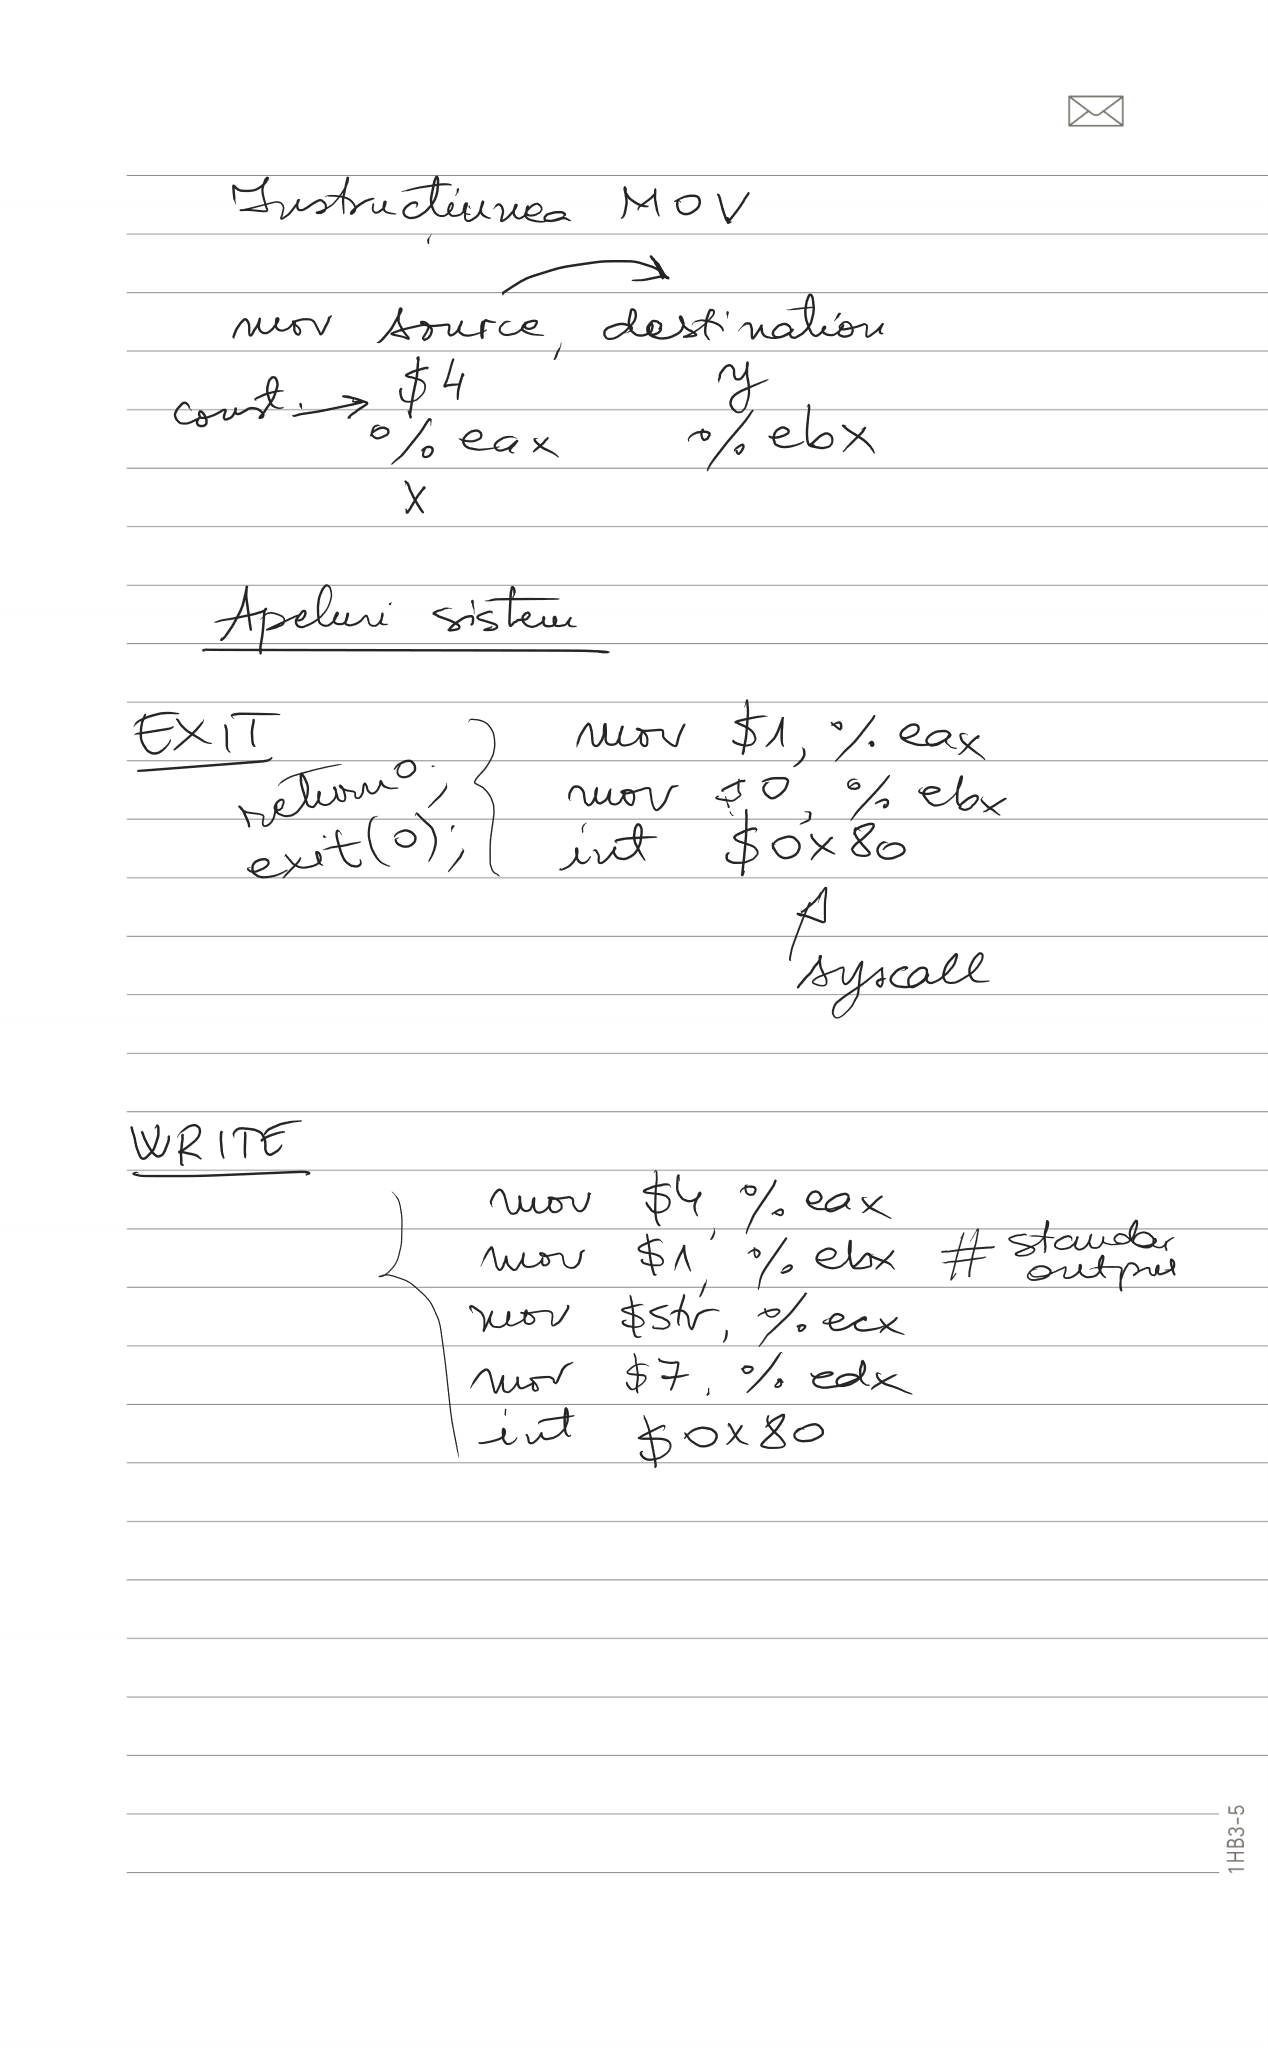 Instrucțiunea MOV
mov source, destination
const. → $4 y
%eax %ebx
x
Apeluri sistem
EXIT
mov $1, %eax
return 0;
mov $0, %ebx
exit(0);
int $0x80
syscall
WRITE
mov $4, %eax
mov $1, %ebx # standar
output
mov $str, %ecx
mov $7, %edx
int $0x80
1HB3-5